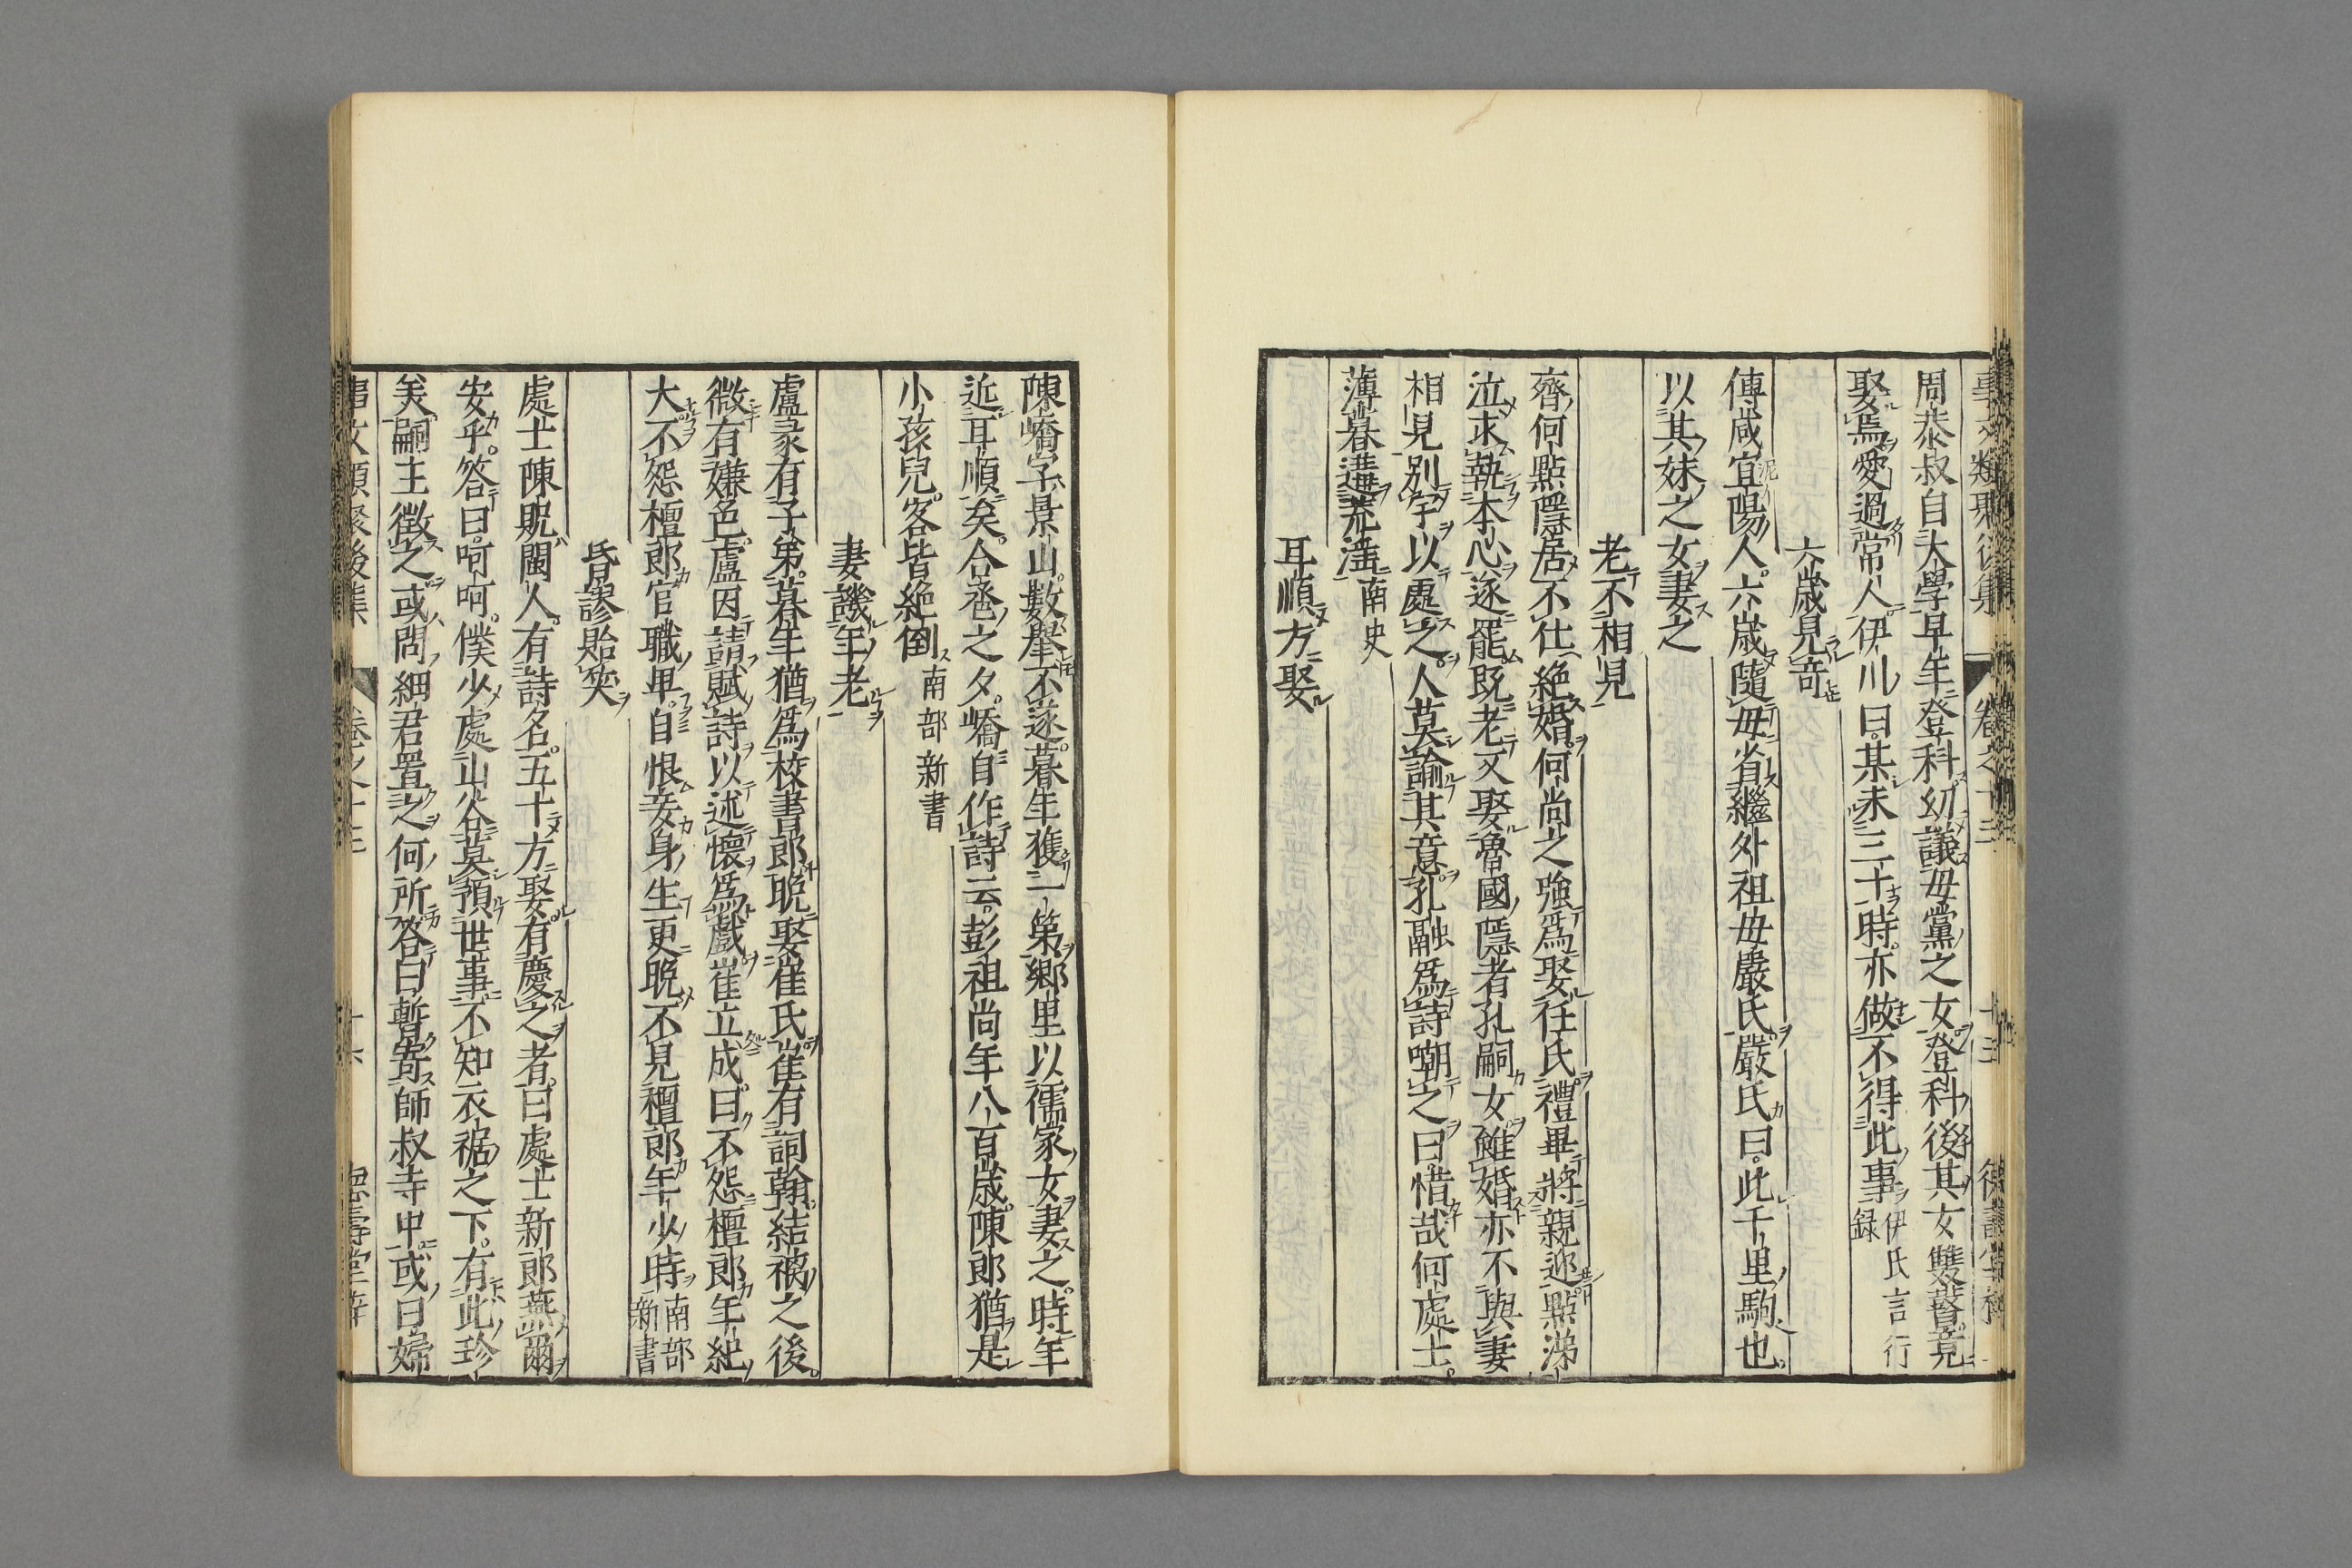 事文類聚後集 卷之十三
周恭叔自大學早年登科幼議母黨之女登科後其女雙瞽竟
娶焉愛過常人伊川曰某未三十時亦做不得此事伊氏言行
録
六歲見竒
傅咸宜陽人六歲隨母省繼外祖母嚴氏嚴氏曰此千里駒也
以其妹之女妻之
老不相見
齊何點隱居不仕絶婚何尚之強爲娶任氏禮畢將親迎點涕
泣求執本心遂罷既老又娶魯國隱者孔嗣女雖婚亦不與妻
相見別宇以處之人莫諭其意孔融爲詩嘲之曰惜哉何處士
薄暮遘荒淫南史
耳順方娶
陳嶠字景山數舉不遂暮年獲一第鄉里以儒家女妻之時年
近耳順矣合巹之夕嶠自作詩云彭祖尚年八百歲陳郎猶是
小孩兒客皆絶倒南部新書
妻譏年老
盧彖有子弟暮年猶爲校書郎晩娶崔氏崔有詞翰結褵之後
微有嫌色盧因請賦詩以述懷爲戲崔立成曰不怨檀郎年紀
大不怨檀郎官職卑自恨妾身生更晩不見檀郎年少時南部
新書
昏謬貽笑
處士陳貺閩人有詩名五十方娶有慶之者曰處士新郎燕爾
安乎答曰呵呵僕少處山谷莫預世事不知衣裾之下有此珍
美嗣主徴之或問細君置之何所答曰暫寄師叔寺中或曰婦